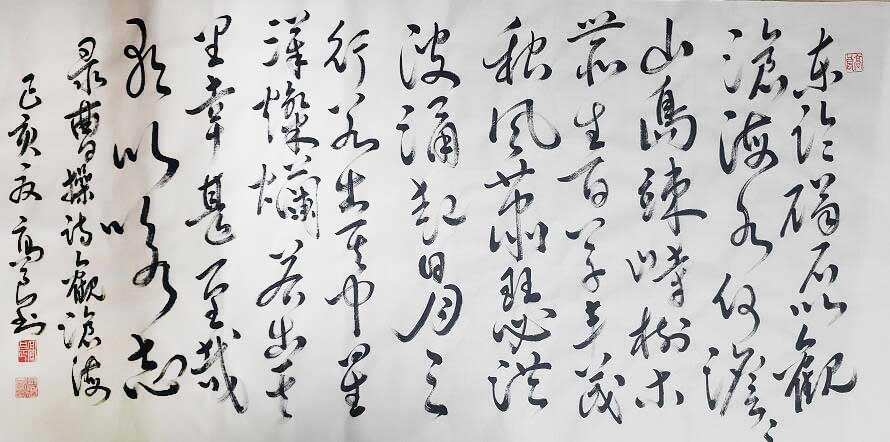 东临碣石以觀
滄海水何澹〻
山島竦峙树木
叢生百草丰茂
秋风萧瑟洪
波涌起日月之
行若出其中星
漢燦爛若出其
里幸甚至哉
歌以咏志
录曹操诗觀滄海
己亥夏高